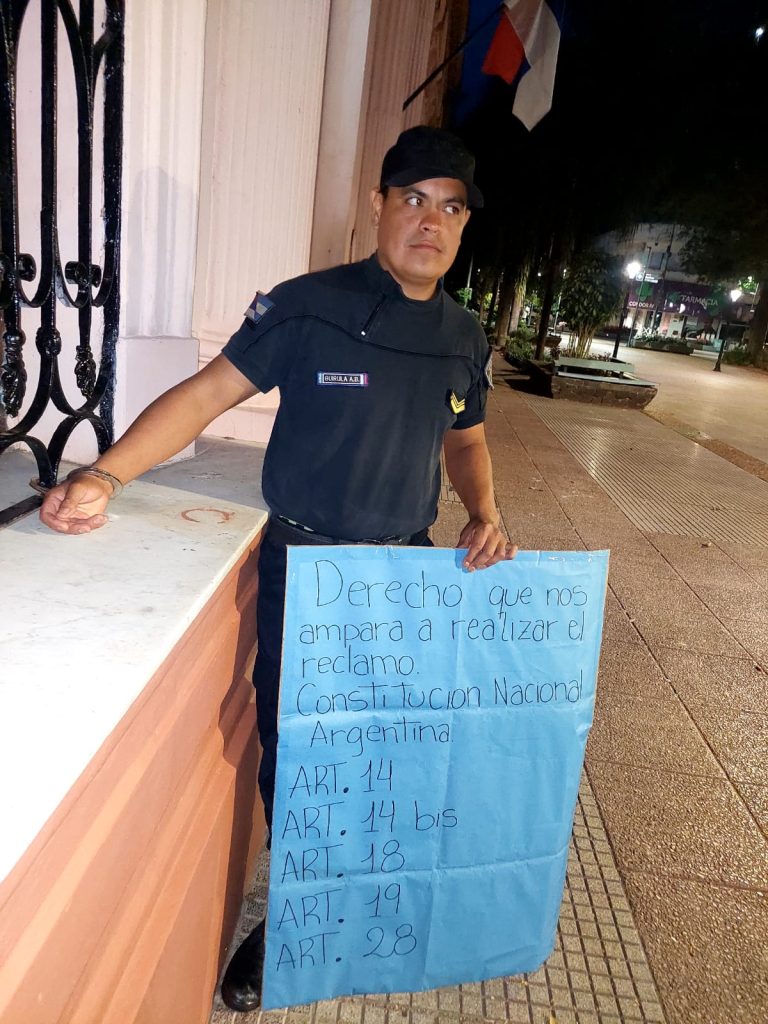 FARMACIA
BUIRULA A.B.
Derecho que nos
ampara a realizar el
reclamo.
Constitucion Nacional
Argentina
ART. 14
ART. 14 bis
ART. 18
ART. 19
ART. 28